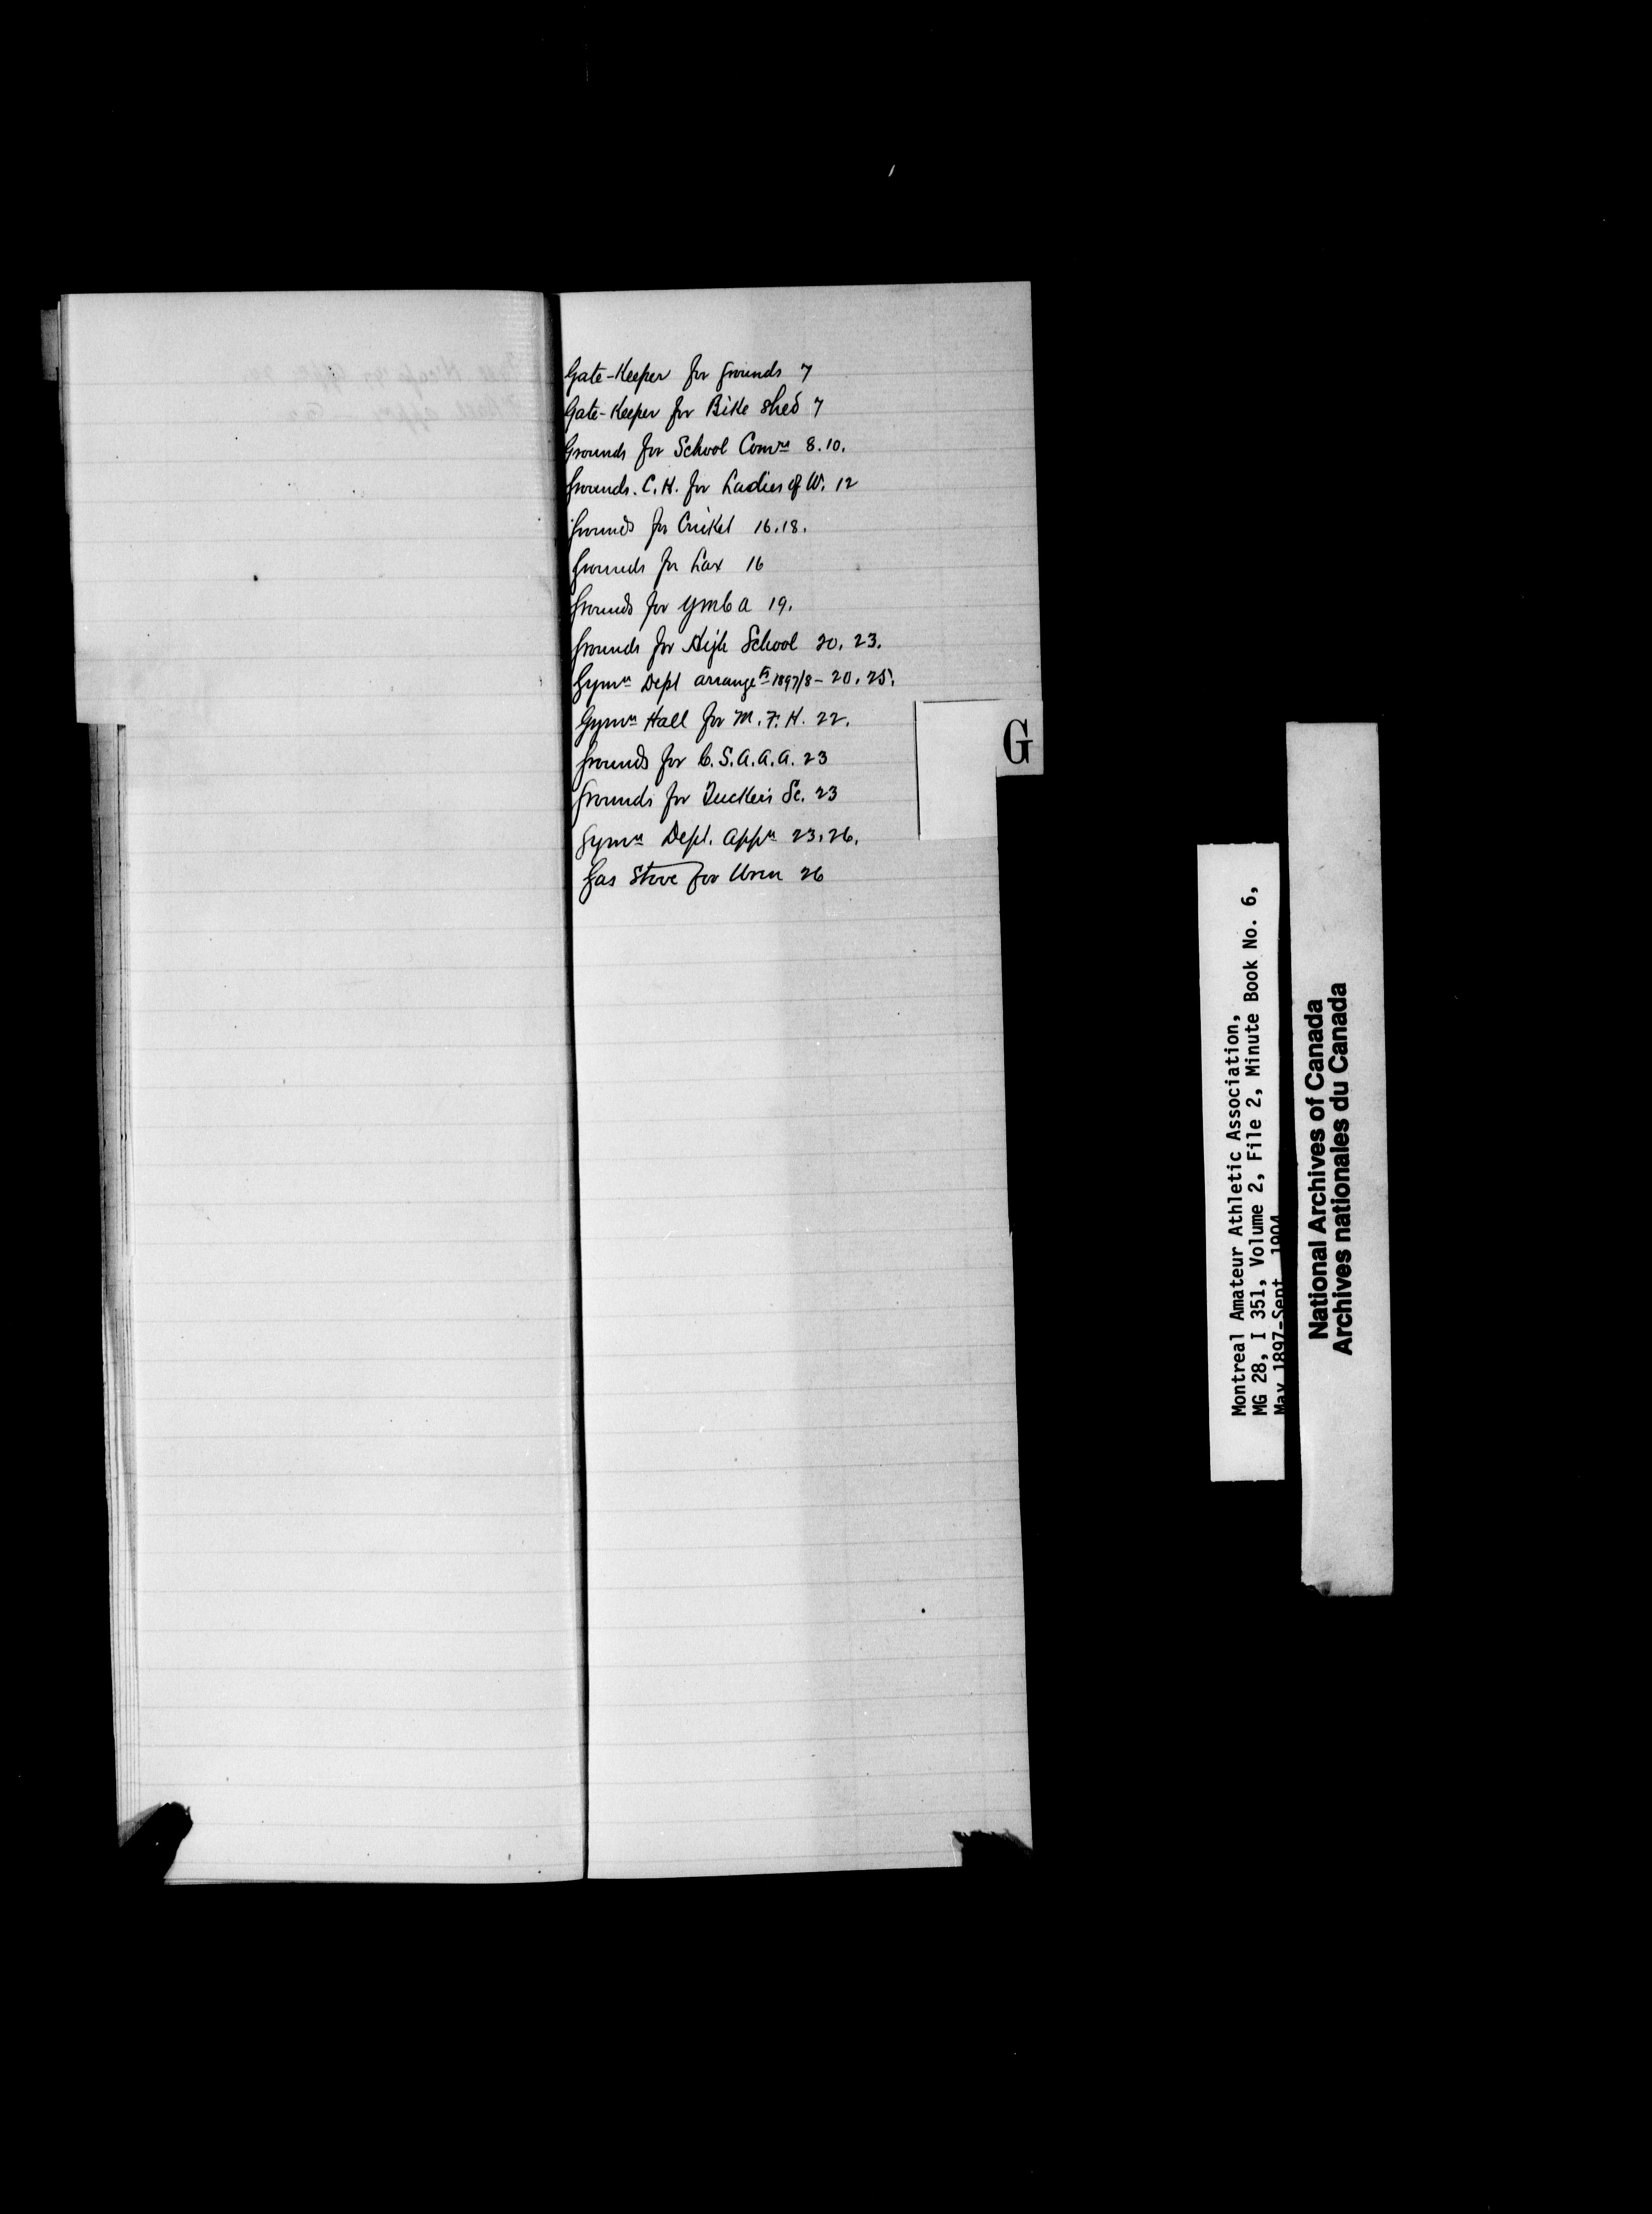 Gate-Keeper for Grounds 7
Gate-Keeper for Bike shed 7
Grounds for School Comrs 8.10.
Grounds. C.H. for Ladies of W. 12
Grounds for Cricket 16.18.
Grounds for Lax 16
Grounds for YMCA 19.
Grounds for High School 20. 23.
Gymn Dept arranget 1897/8 - 20. 25.
Gymn Hall for M.F.H. 22.
Grounds for C.S.A.A.A. 23
Grounds for Tucker's Sc. 23
Gymn Dept. appn 23.26.
Gas Stove for Uren 26
G
Montreal Amateur Athletic Association,
MG 28, I 351, Volume 2, File 2, Minute Book No. 6,
May 1897-Sept 1904
National Archives of Canada
Archives nationales du Canada